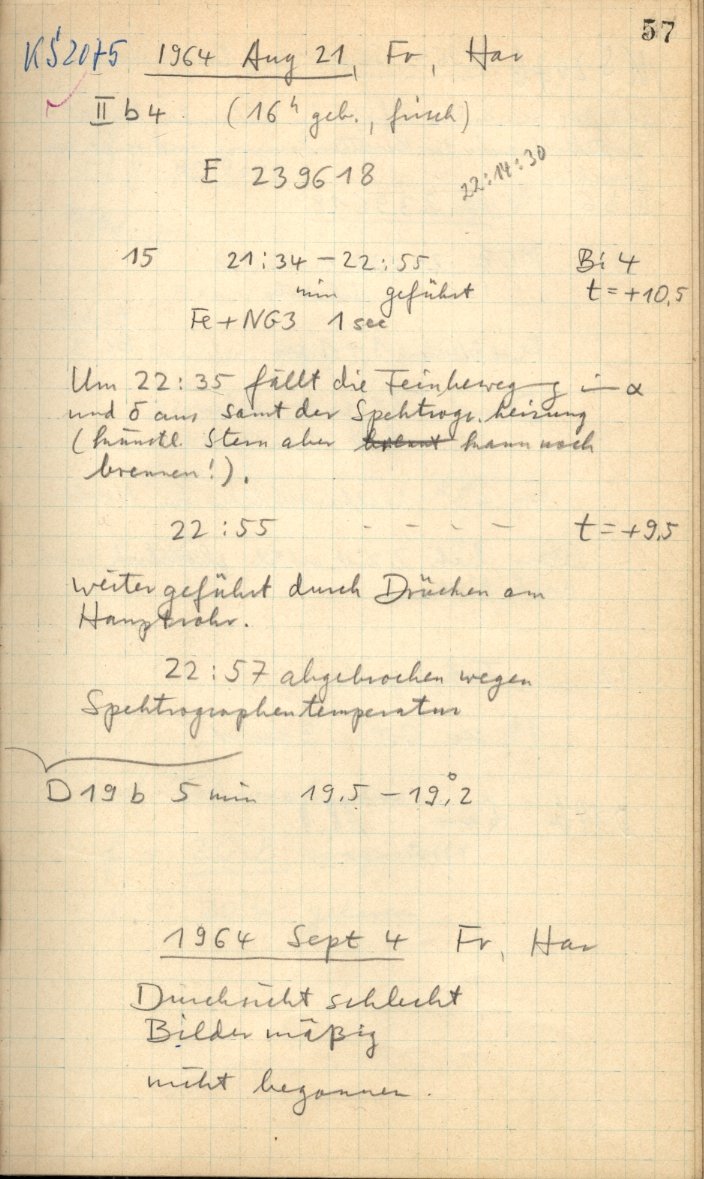 57
KŠ2075 1964 Aug 21, Fr, Har
II b 4 (16h geb., frisch)
E 239618
22:14:30
15 21:34 – 22:55 Bi 4
min geführt t = +10,5
Fe + NG3 1 sec
Um 22:35 fällt die Feinbewegg in α
und δ aus samt der Spektrogr. heizung
(künstl. Stern aber brennt kann noch
brennen!).
22:55 - - - - t = +9,5
weiter geführt durch Drücken am
Hauptrohr.
22:57 abgebrochen wegen
Spektrographentemperatur
D19b 5 min 19,5 – 19,°2
1964 Sept 4 Fr, Har
Durchsicht schlecht
Bilder mäßig
nicht begonnen.